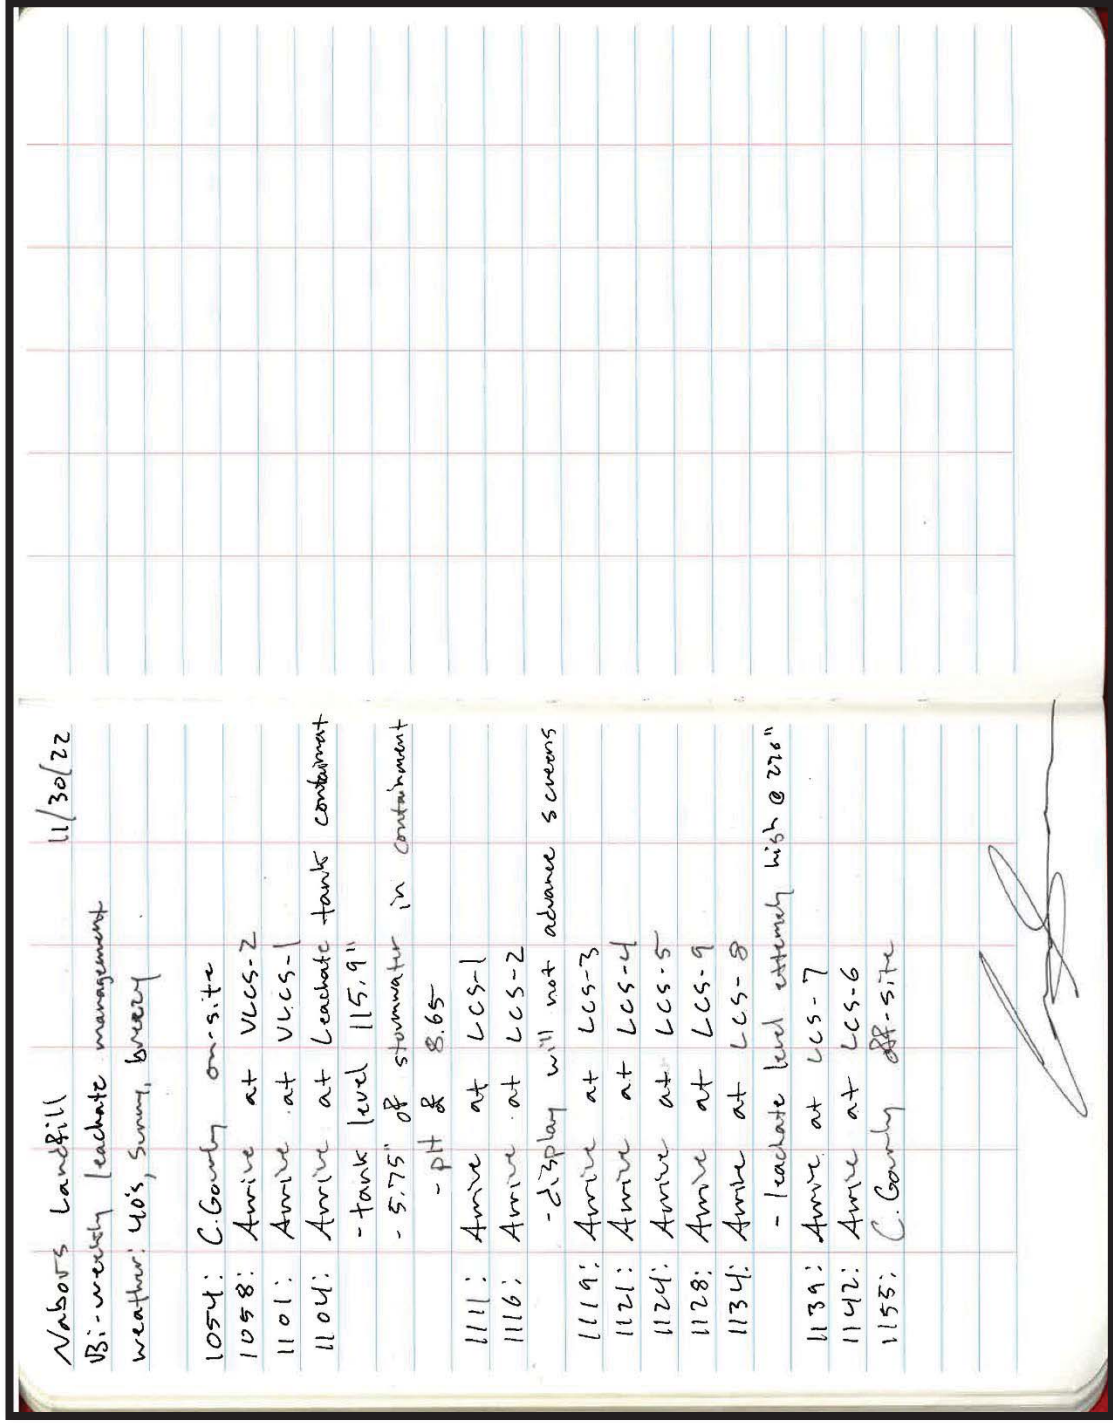 Nabors Landfill 11/30/22
Bi-weekly leachate management
weather: 40's, sunny, breezy
1054: C. Gourly on-site
1058: Arrive at VLCS-2
1101: Arrive at VLCS-1
1104: Arrive at Leachate tank containment
- tank level 115.9"
- 5.75" of stormwater in containment
- pH 8.65
1111: Arrive at LCS-1
1116: Arrive at LCS-2
- display will not advance screens
1119: Arrive at LCS-3
1121: Arrive at LCS-4
1124: Arrive at LCS-5
1128: Arrive at LCS-9
1134: Arrive at LCS-8
- leachate level extremely high @ 270"
1139: Arrive at LCS-7
1142: Arrive at LCS-6
1155: C. Gourly off-site